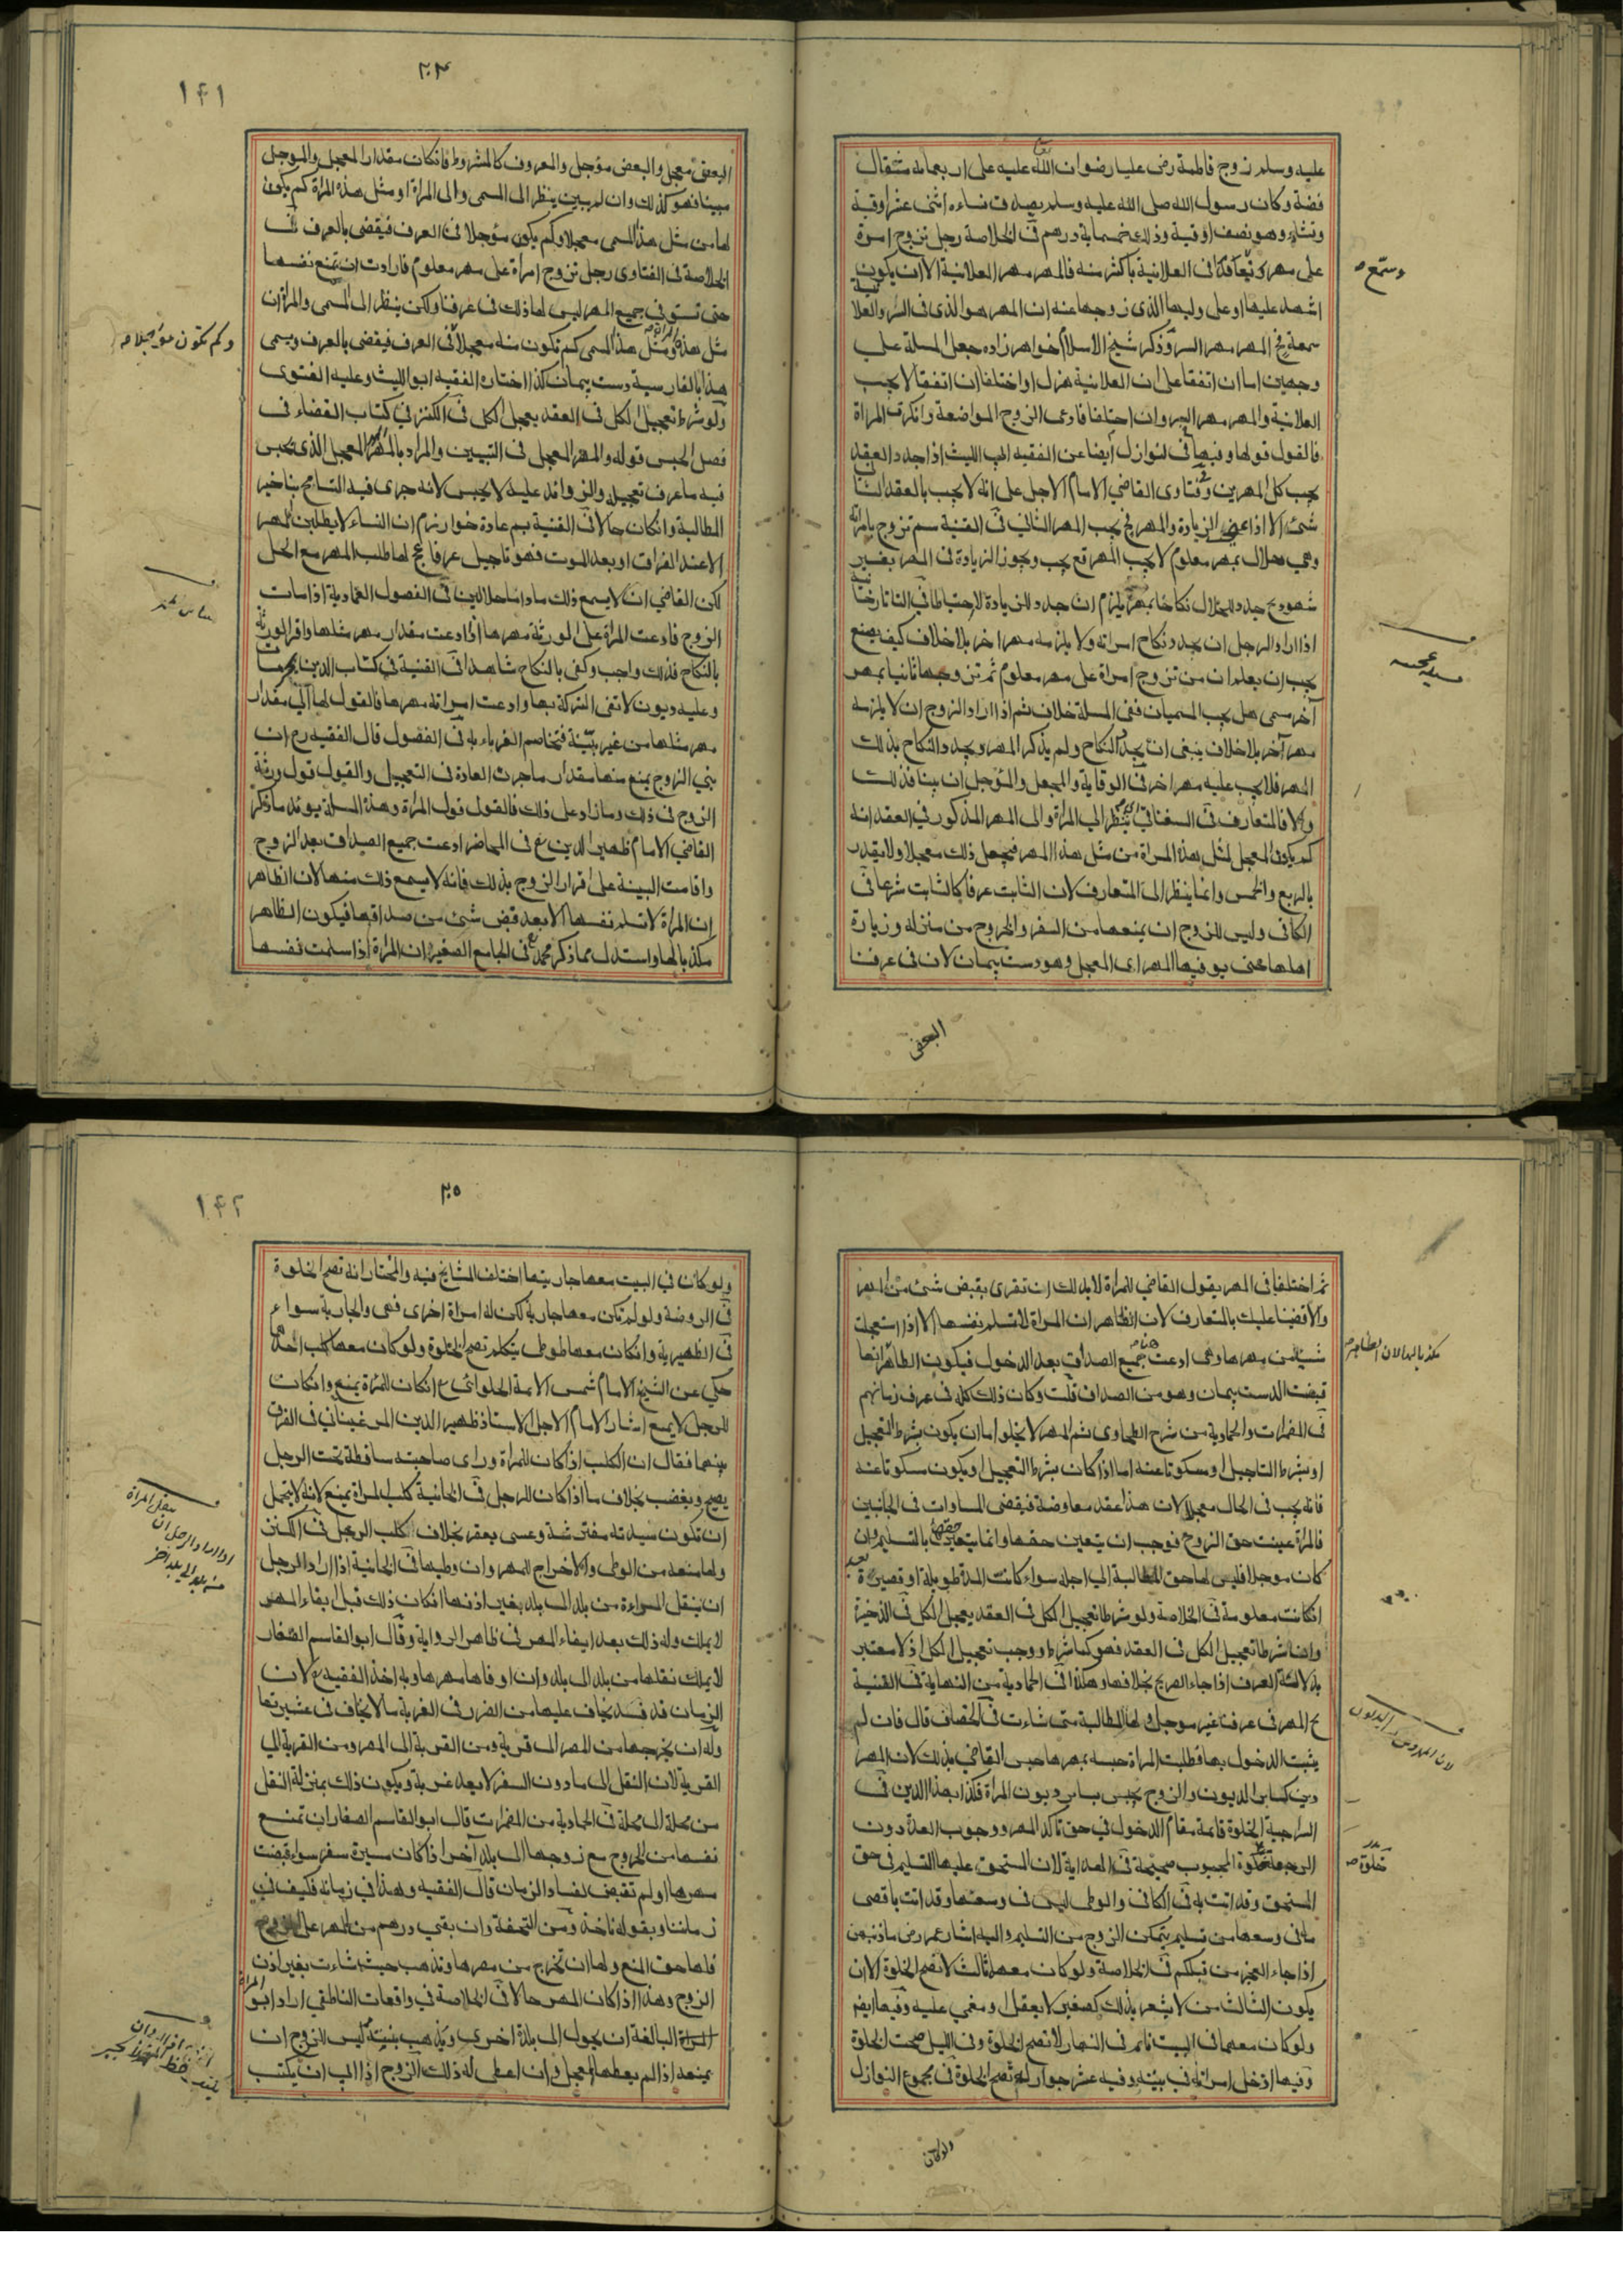 عليه وسلم زوج فاطمة رض عليا رضوان الله عليه على اربعماية مثقال
فضة وكان رسول الله صلى الله عليه وسلم يصدق نساءه اثنى عشر اوقية
ونشاء وهو نصف اوقية وذلك خمسماية درهم فى الخلاصة رجل تزوج امرة
على مهر فى العلانية باكثر منه فالمهر مهر العلانية الا ان يكون
وسمع
اشهد عليها او على وليها الذى زوجها منه ان المهر هو الذى فى السر والعلا
سمعة فح المهر مهر السر وذكر شيخ الاسلام خواهر زاده جعل المسلة على
وجهين اما ان اتفقا على ان العلانية هزل او اختلفا ان اتفقا لا يجب
العلانية والمهر مهر السر وان اختلفا فادعى الزوج المواضعة وانكرت المراة
فالقول قولها وفيها فى النوازل ايضا عن الفقيه ابى الليث اذا جدد العقد
يجب كل المهرين وفى فتاوى القاضي الامام الاجل على انه لا يجب بالعقد الثانى
شئ الا اذا عنى الزيادة والمهر فح يجب المهر الثانى فى القنية سم تزوج بامراته
وهى حلال بمهر معلوم لا يجب المهر قع يجب ويجوز الزيادة فى المهر بغير
شهود بح جدد للحلال نكاحا بمهر يلزم ان جدد للزيادة لا احتياطا فى التاتارخانية
اذا اراد الرجل ان يجدد نكاح امراته ولا يلزمه مهر اخر بلا خلاف كيف يصنع
يجب ان يعلم ان من تزوج امراة على مهر معلوم ثم تزوجها ثانيا بمهر
آخر سمى هل يجب المسميان ففى المسلة خلاف ثم اذا اراد الزوج ان لا يلزمه
مهر آخر بلا خلاف ينبغى ان يجدد النكاح ولم يذكر المهر ويجدد النكاح بذلك
المهر فلا يجب عليه مهر اخر فى الوقاية والمعجل والمؤجل ان بينا فذلك
والا فالمتعارف فى السغناقي ينظر الي المراة والى المهر المذكور في العقد انه
كم يكون المعجل لمثل هذه المراة من مثل هذا المهر فيجعل ذلك معجلا ولا يقدر
بالربع والخمس وانما ينظر الى المتعارف لان الثابت عرفا كالثابت شرعا فى
الكافى وليس للزوج ان يمنعها من السفر والخروج من منزله وزيارة
اهلها حتى يوفيها المهر اى المعجل وهو دست پيمان لان فى عرفنا
البعض
٢٠۴
١۴١
البعض معجل والبعض مؤجل والمعروف كالمشروط فان كان مقدار المعجل والموجل
مبينا فهو كذلك وان لم يبين ينظر الى المسمى والى المراة او مثل هذه المراة كم يكون
لها من مثل هذا المسمى معجلا وكم يكون مؤجلا فى العرف فيقضى بالعرف فى
الخلاصة فى الفتاوى رجل تزوج امراة على مهر معلوم فارادت ان تمنع نفسها
حتى تستوفى جميع المهر ليس لها ذلك فى عرفنا ولكن ينظر الى المسمى والمراة ان
وكم تكون مؤجلا
مثل هذه ومثل هذا المسمى كم تكون منه معجلا فى العرف فيقضى بالعرف ويسمى
هذا بالفارسية دست پيمان كذا اختاره الفقيه ابو الليث وعليه الفتوى
ولو شرط تعجيل الكل فى العقد يعجل الكل فى الكنز في كتاب القضاء فى
فصل الحبس قوله والمهر المعجل فى التبيين والمراد بالمهر المعجل الذى يحبس
فيه ما عرف تعجيله والزوائد عليه لا يحبس لانه جرى فيه التسامح بتاخير
المطالبة وان كان حالا فى القنية بم عادة خوارزم ان النساء لا يطلبن المهر
الا عند الفراق او بعد الموت فهو تاجيل عرفا عج لها طلب المهر مع الحل
لكن القاضي ان لا يسمع ذلك فى الفصول العمادية اذا مات
الزوج فادعت المراة على الورثة مهرها اذا ادعت مقدار مهر مثلها واقر الورثة
بالنكاح فذلك واجب وكفى بالنكاح شاهدا فى القنية في كتاب الدين
وعليه ديون لا تفى التركة بها وادعت امراته مهرها فالقول لها الي مقدار
مهر مثلها من غير بينة فتخاصم الغرماء به فى الفصول قال الفقيه رح ان
بنى الزوج يمنع منها مقدار ما جرت العادة فى التعجيل والقول قول ورثة
الزوج فى ذلك وما زاد على ذلك فالقول قول المراة وهذه المسلة يوئد ما ذكر
القاضي الامام ظهير الدين غ فى المحاضر ادعت جميع الصداق بعد الزوج
واقامت البينة على اقرار الزوج بذلك فانه لا يسمع ذلك منها لان الظاهر
ان المراة لا تسلم نفسها الا بعد قبض شئ من صداقها فيكون الظاهر
مكذبا لها واستدل بما ذكر محمد فى الجامع الصغير ان المراة اذا سلمت نفسها
ثم اختلفا فى المهر يقول القاضي للمراة لا بد لك ان تقرى بقبض شئ من المهر
والا قضينا عليك بالمتعارف لان الظاهر ان المراة لا تسلم نفسها الا اذا استعجلت
شيا من مهرها وهى ادعت جميع الصداق بعد الدخول فيكون الظاهر انها
مكذبا لها لان الظاهر
قبضت الدست پيمان وهو من الصداق قلت وكان ذلك كله فى عرف زمانهم
فى المضمرات والحمادية من شرح الطحاوى ثم المهر لا يخلوا ما ان يكون بشرط التعجيل
او بشرط التاجيل او مسكوتا عنه اما اذا كان بشرط التعجيل او يكون مسكوتا عنه
فانه يجب فى الحال معجلا لان هذا عقد معاوضة فيقضى المساوات فى الجانبين
فالمراة عينت حق الزوج فوجب ان يتعين حقها وانما يتعين حقها بالتسليم وان
كان موجلا فليس لها حق المطالبة الي اجله سواء كانت المدة طويلة او قصيرة بعد
ان كانت معلومة فى الخلاصة ولو شرط تعجيل الكل فى العقد يعجل الكل فى الذخيرة
واذا شرط تعجيل الكل فى العقد فهو كما شرط ووجب تعجيل الكل اذ لا معتبر
بدلالة العرف اذا جاء الصريح بخلافها وهكذا فى الحمادية من النهاية فى القنية
بح المهر فى عرفنا غير موجل ولها المطالبة متى شاءت فى الخصاف قال فان لم
يثبت الدخول بها فطلبت المراة حبسه بمهرها حبس القاضي بذلك لان المهر
دين كسائر الديون والزوج يحبس بسائر ديون المراة فكذا بهذا الدين فى
السراجية الخلوة قائمة مقام الدخول في حق تاكد المهر ووجوب العدة دون
الرجعة خلوة المجبوب صحيحة فى الهداية لان المستحق عليها التسليم فى حق
خلوة
المستحق وقد اتت به فى الكافى والوطى ليس فى وسعها وقد اتت باقصى
ما فى وسعها من تسليم يتمكن الزوج من التسليم واليه اشار عمر رض ما ذنبهن
اذا جاء العجز من قبلكم فى الخلاصة ولو كان معها ثالث لا تصح الخلوة الا ان
يكون الثالث من لا يشعر بذلك كصغير لا يعقل او مغمي عليه وفيها ايضا
ولو كان معهما فى البيت نائم فى النهار لا تصح الخلوة وفى الليل صحت الخلوة
وفيها ادخل امراته فى بيته وفيه عشر جوار له تصح الخلوة فى مجموع النوازل
ولو كان
٢٠٥
١۴٢
ولو كان في البيت معها جاريتها اختلف المشايخ فيه والمختار انه تصح الخلوة
فى الروضة ولو لم تكن معها جارية لكن له امراة اخرى فهى والجارية سواء
فى الظهيرية وان كان معها طوطى يتكلم تصح الخلوة ولو كان معها كلب احدهما
حكي عن الشيخ الامام شمس الائمة الحلوانى رح ان كان للمراة يمنع وان كان
للرجل لا يمنع اشار الامام الاجل الاستاذ ظهير الدين المرغينانى فى الفرق
بينهما فقال ان الكلب اذا كان للمراة وراى صاحبته ساقطة تحت الرجل
يصيح ويغضب بخلاف ما اذا كان للرجل فى الخانية كلب المراة يمنع لانه لا يتحمل
ان تكون سيدته مفترشة وعسى يعقر بخلاف كلب الرجل فى الكنز
ولها منعه من الوطى والاخراج للمهر وان وطيها فى الخانية اذا اراد الرجل
نقل المراة
اذا اراد الرجل ان
من بلد الى بلد اخر
ان ينقل المراة من بلد الى بلد بغير اذنها ان كان ذلك قبل ايفاء المهر
لا يملك وله ذلك بعد ايفاء المهر فى ظاهر الرواية وقال ابو القاسم الصفار
لا يملك نقلها من بلد الى بلد وان اوفاها مهرها وبه اخذ الفقيه رح لان
الزمان قد فسد يخاف عليها من الضرر فى الغربة ما لا يخاف فى عشيرتها
وله ان يخرجها من المصر الى قرية ومن القرية الى المصر ومن القرية الي
القرية لان النقل الى ما دون السفر لا يعد غربة ويكون ذلك بمنزلة النقل
من محلة الى محلة فى الحمادية من المضمرات قال ابو القاسم الصفار ان تمنع
نفسها من الخروج مع زوجها الى بلد آخر اذا كان مسيرة سفر سواء قبضت
مهرها او لم تقبض لفساد الزمان قال الفقيه وهذا في زمانه فكيف في
زماننا وبقوله ناخذ ومن التحفة وان بقي درهم من المهر على الزوج
فلها حق المنع ولها ان تخرج من مصرها وتذهب حيث شاءت بغير اذن
الزوج وهذا اذا كان المهر حالا فى الخلاصة في واقعات الناطفي اراد ابو المراة
البالغة ان يحول الى بلدة اخرى ويذهب ببنته ليس للزوج ان
يمنعه اذا لم يعطها المعجل وان اعطى له ذلك الزوج اذا ابى ان يكتب